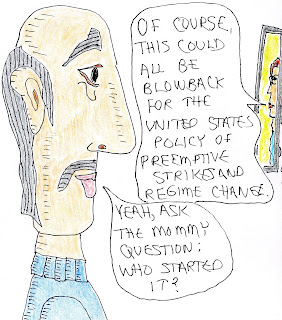 OF COURSE,
THIS COULD
ALL BE
BLOWBACK
FOR THE
UNITED STATES
POLICY OF
PREEMPTIVE
STRIKES AND
REGIME CHANGE.
YEAH, ASK
THE MOMMY
QUESTION:
WHO STARTED
IT?